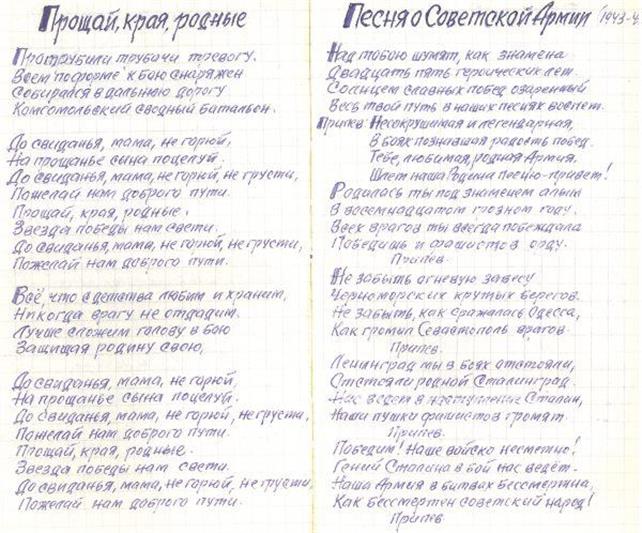 Прощай, края, родные
Протрубили трубачи тревогу.
Всем по форме к бою снаряжен
Собирался в дальнюю дорогу
Комсомольский сводный батальон.
До свиданья, мама, не горюй,
На прощанье сына поцелуй.
До свиданья, мама, не горюй, не грусти,
Пожелай нам доброго пути.
Прощай, края, родные,
Звезда победы нам свети.
До свиданья, мама, не горюй, не грусти,
Пожелай нам доброго пути.
Всё, что с детства любим и храним,
Никогда врагу не отдадим.
Лучше сложим голову в бою
Защищая родину свою,
До свиданья, мама, не горюй,
На прощанье сына поцелуй.
До свиданья, мама, не горюй, не грусти,
Пожелай нам доброго пути.
Прощай, края, родные.
Звезда победы нам свети.
До свиданья, мама, не горюй, не грусти,
Пожелай нам доброго пути.
Песня о Советской Армии (1943-4
Над тобою шумят, как знамена
Двадцать пять героических лет
Солнцем славных побед озаренный
Весь твой путь в наших песнях воспет.
Припев: Несокрушимая и легендарная,
В боях познавшая радость побед.
Тебе, любимая, родная Армия,
Шлет наша Родина песню-привет!
Родилась ты под знаменем алым
В восемнадцатом грозном году.
Всех врагов ты всегда побеждала
Победишь и фашистов орду.
Припев.
Не забыть огневую завесу
Черноморских крутых берегов.
Не забыть, как сражалась Одесса,
Как громил Севастополь врагов.
Припев.
Ленинград мы в боях отстояли,
Отстояли родной Сталинград.
Нас ведет в наступление Сталин,
Наши пушки фашистов громят.
Припев.
Победим! Наше войско несметно!
Гений Сталина в бой нас ведёт.
Наша Армия в битвах бессмертна,
Как бессмертен советский народ!
Припев